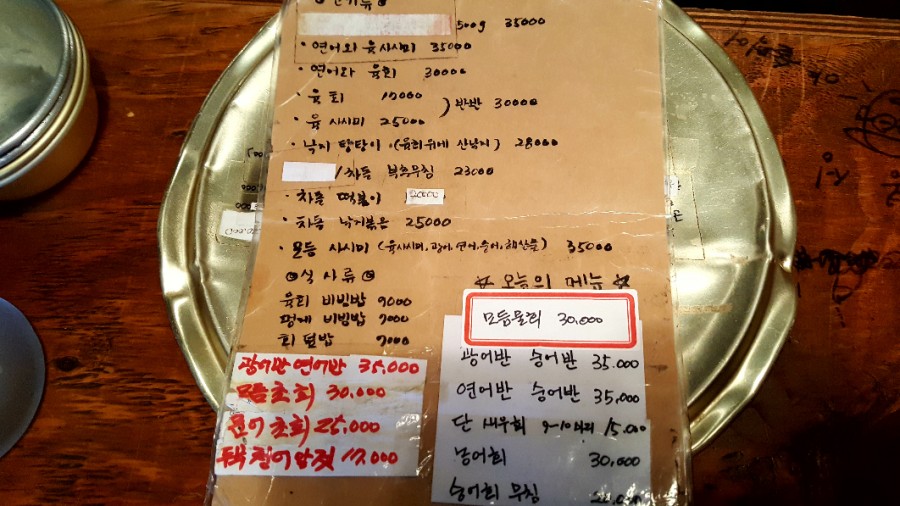 500g 35000
· 연어와 육사시미 35000
· 연어와 육회 30000
· 육회
· 육 사시미 25000
) 반반 30000
· 낙지 탕탕이 (육회위에 산낙지) 28000
/차돌 부추무침 23000
· 차돌 떡볶이 20000
· 차돌 낙지볶음 25000
· 모듬 사시미 (육사시미, 광어, 연어, 숭어, 해산물) 35000
◎식사류◎
육회 비빔밥 9000
멍게 비빔밥 7000
회 덮밥 7000
광어반 연어반 35,000
모듬초회 30,000
초회 25,000
17,000
☆ 오늘의 메뉴 ☆
모듬물회 30,000
광어반 숭어반 35.000
연어반 숭어반 35,000
단 새우회 9~10마리 15.000
농어회 30,000
숭어회 무침